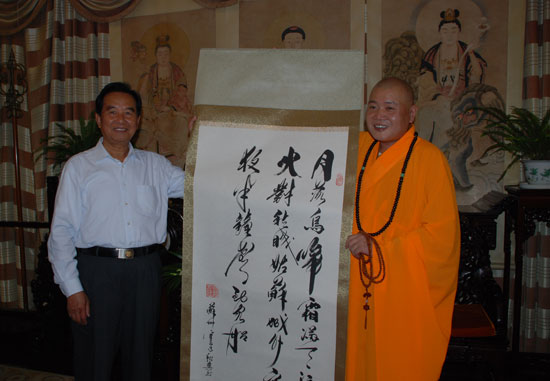 月落烏啼霜滿天江
火對愁眠姑蘇城外寒
夜半鐘聲到客船